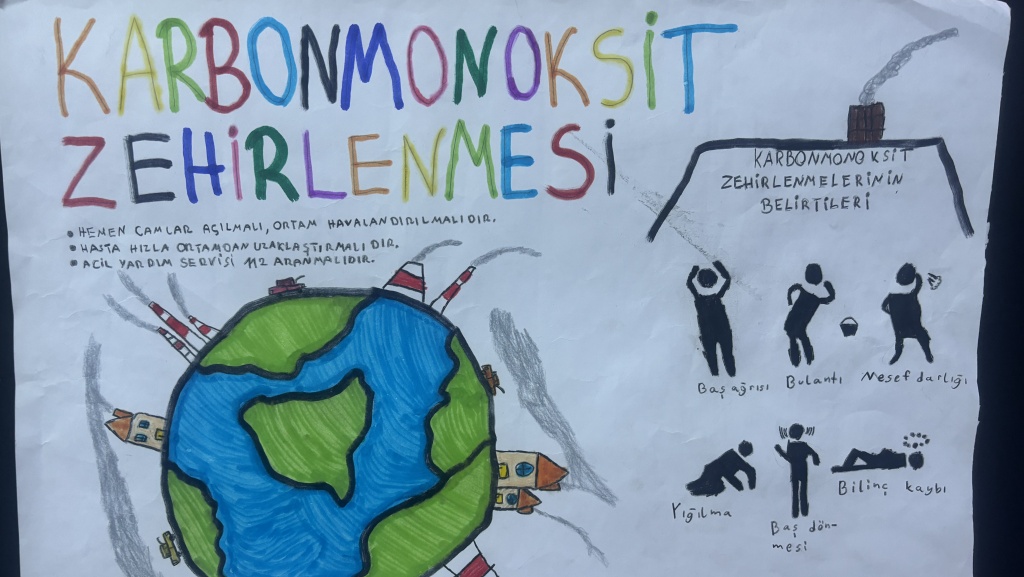 KARBONMONOKSİT
ZEHİRLENMESİ
• HEMEN CAMLAR AÇILMALI, ORTAM HAVALANDIRILMALIDIR.
• HASTA HIZLA ORTAMDAN UZAKLAŞTIRMALIDIR.
• ACİL YARDIM SERVİSİ 112 ARANMALIDIR.
KARBONMONOKSİT
ZEHİRLENMELERİNİN
BELİRTİLERİ
Baş ağrısı
Bulantı
Nesef darlığı
Yığılma
Baş dön-
mesi
Bilinç kaybı